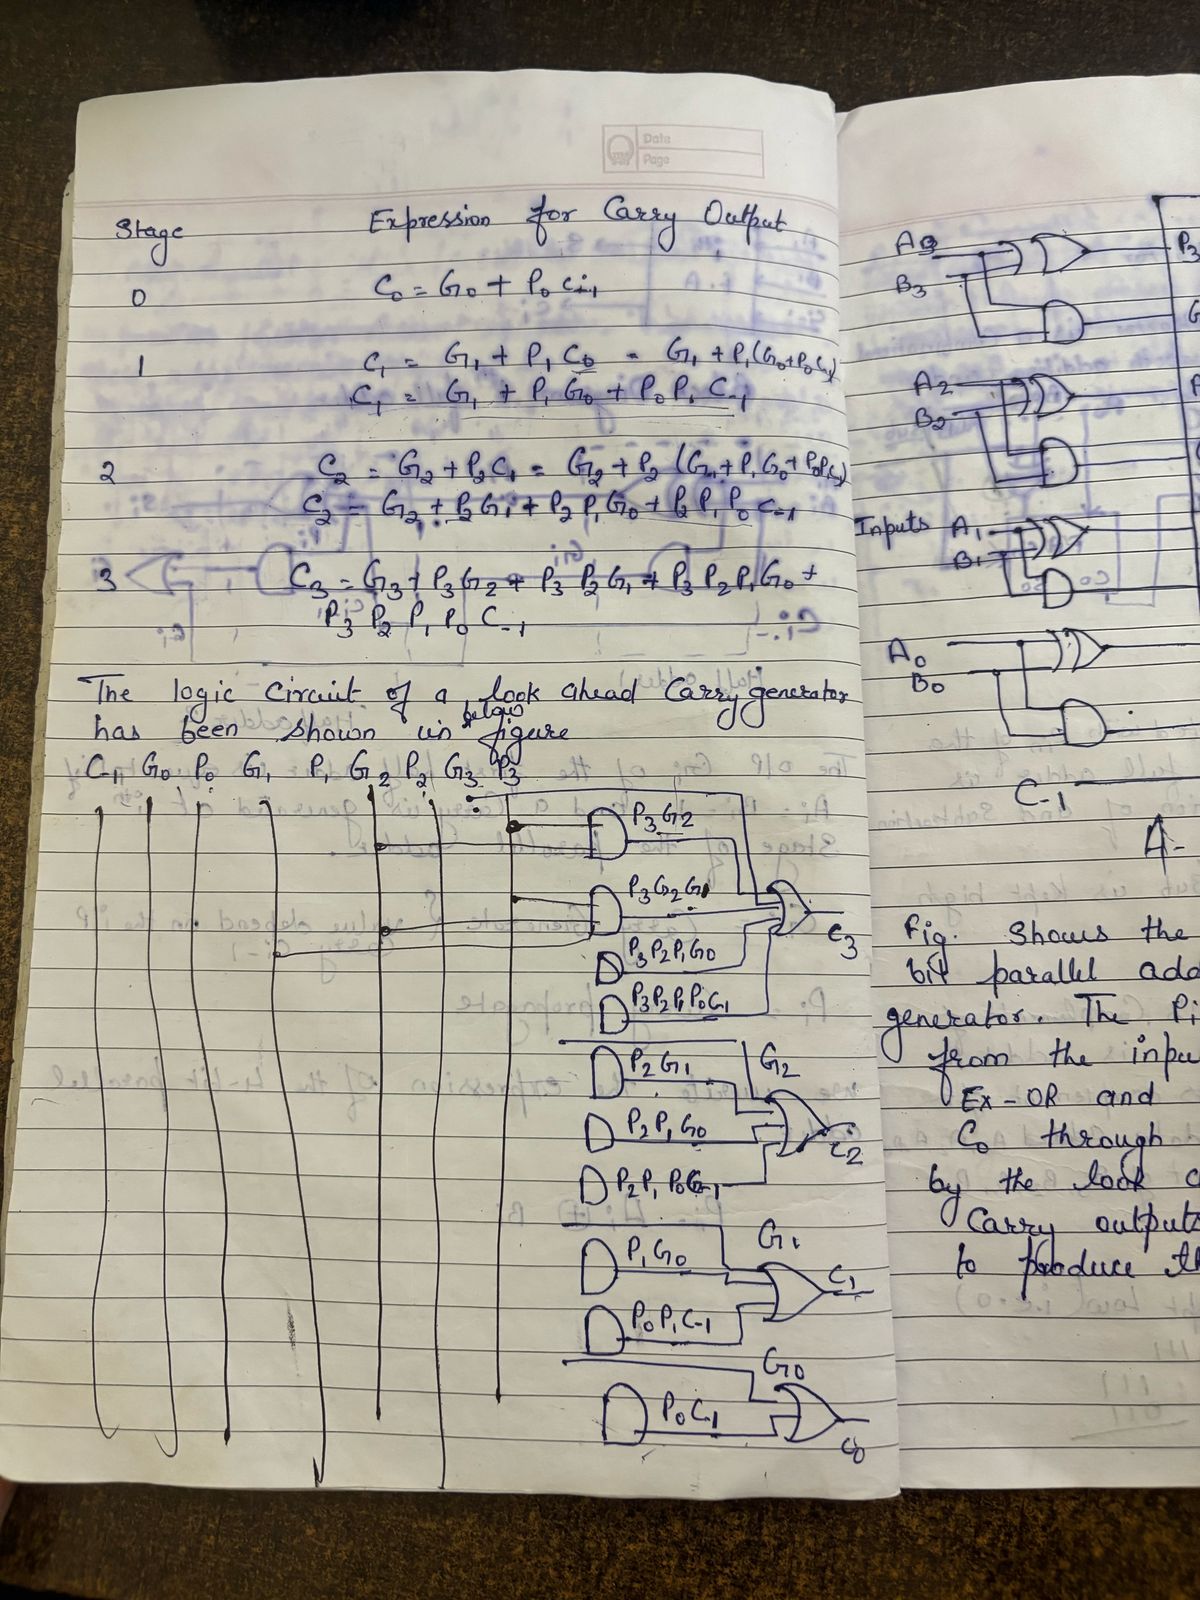 Date
Page
Stage Expression for Carry Output
0 C₀ = G₀ + P₀ Ci-1
1 C₁ = G₁ + P₁ C₀ = G₁ + P₁(G₀+P₀C₋₁)
C₁ = G₁ + P₁ G₀ + P₀ P₁ C₋₁
2 C₂ = G₂ + P₂ C₁ = G₂ + P₂ (G₁ + P₁ G₀ + P₀P₁C₋₁)
C₂ = G₂ + P₂ G₁ + P₂ P₁ G₀ + P₂ P₁ P₀ C₋₁
3 C₃ = G₃ + P₃ G₂ + P₃ P₂ G₁ + P₃ P₂ P₁ G₀ +
P₃ P₂ P₁ P₀ C₋₁
The logic circuit of a look ahead Carry generator
has been shown in below figure
C₋₁ G₀ P₀ G₁ P₁ G₂ P₂ G₃ P₃
P₃G₂
P₃G₂G₁
C₃
P₃P₂P₁G₀
P₃P₂P₁P₀C₋₁
G₂
P₂G₁
P₂P₁G₀
C₂
P₂P₁P₀C₋₁
G₁
P₁G₀
C₁
P₀P₁C₋₁
G₀
P₀C₋₁
C₀
A₃
P₃
B₃
G
A₂
P
B₂
Inputs A₁
B₁
A₀
B₀
C₋₁
A-
Fig. Shows the
bit parallel add
generator. The Pi
from the inpu
Ex-OR and
C₀ through
by the look
Carry outputs
to produce th